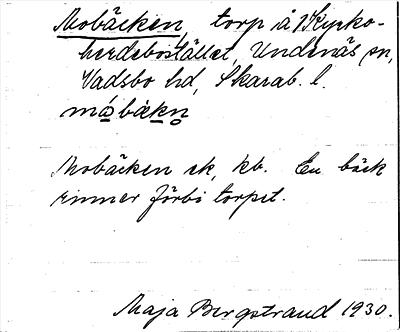 Mobäcken, torp å Kyrko-
herdebostället, Undenäs sn,
Vadsbo hd, Skarab. l.
måbäkn̥
Mobäcken ek, kb. En bäck
rinner förbi torpet.
Maja Bergstrand 1930.